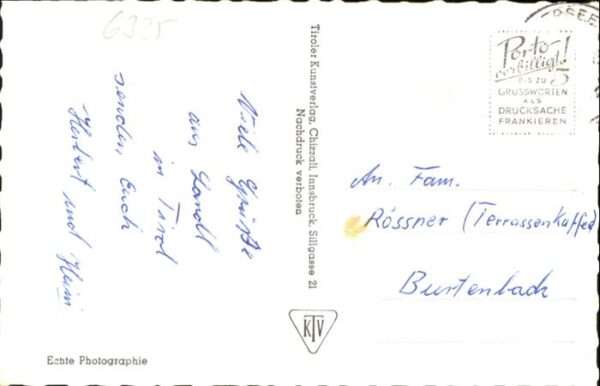 6335
Viele Grüße
aus Landl
in Tirol
senden Euch
Herbert und Heini
Tiroler Kunstverlag, Chizzali, Innsbruck, Sillgasse 21
Nachdruck verboten
KTV
Echte Photographie
Porto-
verbilligt!
BIS ZU 5
GRUSSWORTEN
ALS
DRUCKSACHE
FRANKIEREN
An. Fam.
Rössner (Terrassenkaffee)
Burtenbach